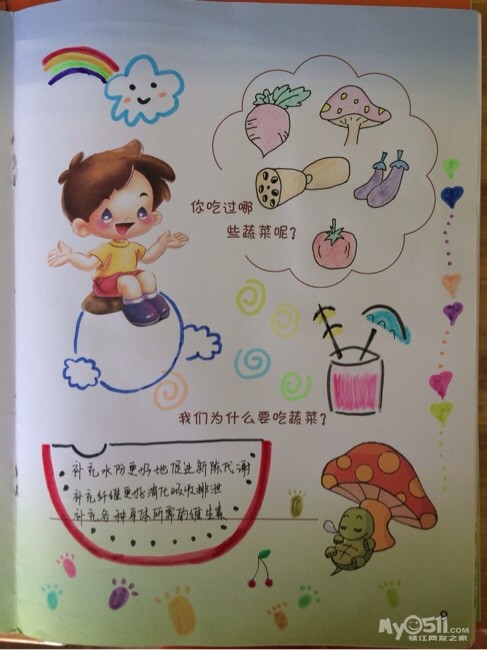 你吃过哪
些蔬菜呢?
我们为什么要吃蔬菜?
补充水份更好地促进新陈代谢
补充纤维更好消化吸收排泄
补充各种身体所需的维生素
My0511.COM
镇江网友之家